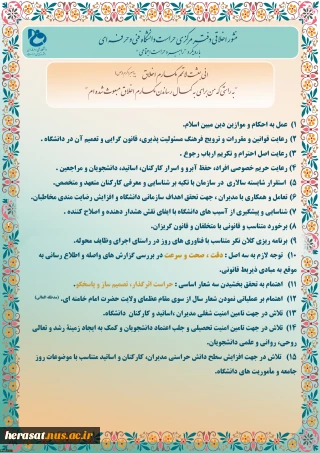 منشور اخلاقی دفتر مرکزی حراست دانشگاه فنی و حرفه ای
انی بعثت لاتمم مکارم اخلاق
"به راستی که من برای به کمال رساندن مکارم اخلاق مبعوث شده ام"
۱) عمل به احکام و موازین دین مبین اسلام.
۲) رعایت قوانین و مقررات و ترویج فرهنگ مسئولیت پذیری، قانون گرایی و تعمیم آن در دانشگاه .
۳) رعایت اصل احترام و تکریم ارباب رجوع .
۴) رعایت حریم خصوصی افراد، حفظ آبرو و اسرار کارکنان، اساتید، دانشجویان و مراجعین .
۵) استقرار شایسته سالاری در سازمان با تکیه بر شناسایی و معرفی کارکنان متعهد و متخصص.
۶) تعامل و همکاری با مدیران ، جهت تحقق اهداف سازمانی دانشگاه و افزایش رضایت مندی مخاطبان.
۷) شناسایی و پیشگیری از آسیب های دانشگاه با ایفای نقش هشدار دهنده و اصلاح کننده .
۸) برخورد متناسب و قانونی با متخلفان و قانون گریزان.
۹) برنامه ریزی کلان نگر متناسب با فناوری های روز در راستای اجرای وظایف محوله.
۱۰) توجه لازم به سه اصل : دقت ، صحت و سرعت در بررسی گزارش های واصله و اطلاع رسانی به
موقع به مبادی ذیربط قانونی.
۱۱) اهتمام به تحقق بخشیدن سه شعار اساسی : حراست اثرگذار، تصمیم ساز و پاسخگو.
۱۲) اهتمام بر عملیاتی نمودن شعار سال از سوی مقام عظمای ولایت حضرت امام خامنه ای.
۱۳) تلاش در جهت تامین امنیت شغلی مدیران ،اساتید و کارکنان دانشگاه.
۱۴) تلاش در جهت تامین امنیت تحصیلی و جلب اعتماد دانشجویان و کمک به ایجاد زمینهٔ رشد و تعالی
روحی، روانی و علمی دانشجویان.
۱۵) تلاش در جهت افزایش سطح دانش حراستی مدیران، کارکنان و اساتید متناسب با موضوعات روز
جامعه و مأموریت های دانشگاه.
herasat.nus.ac.ir